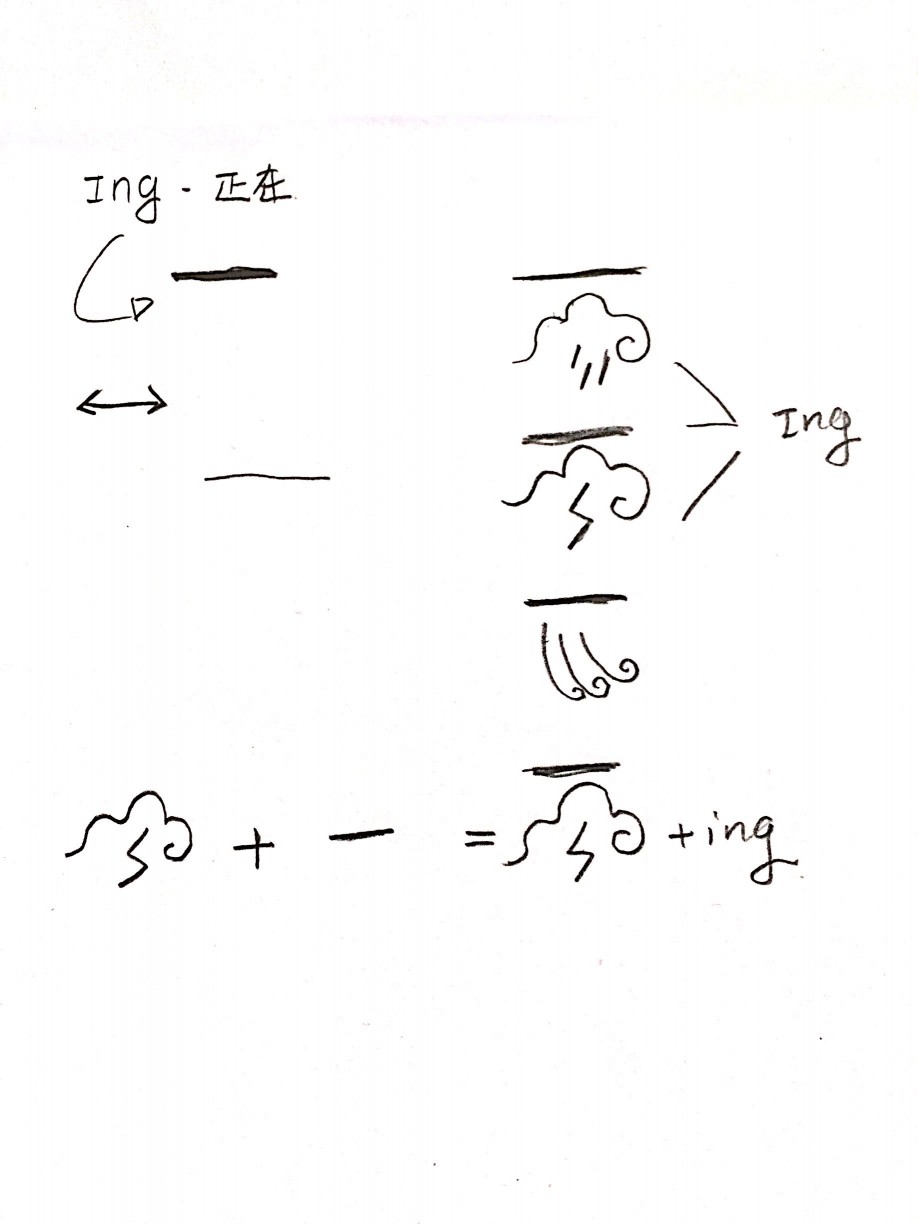 Ing - 正在
Ing
+ — = + ing